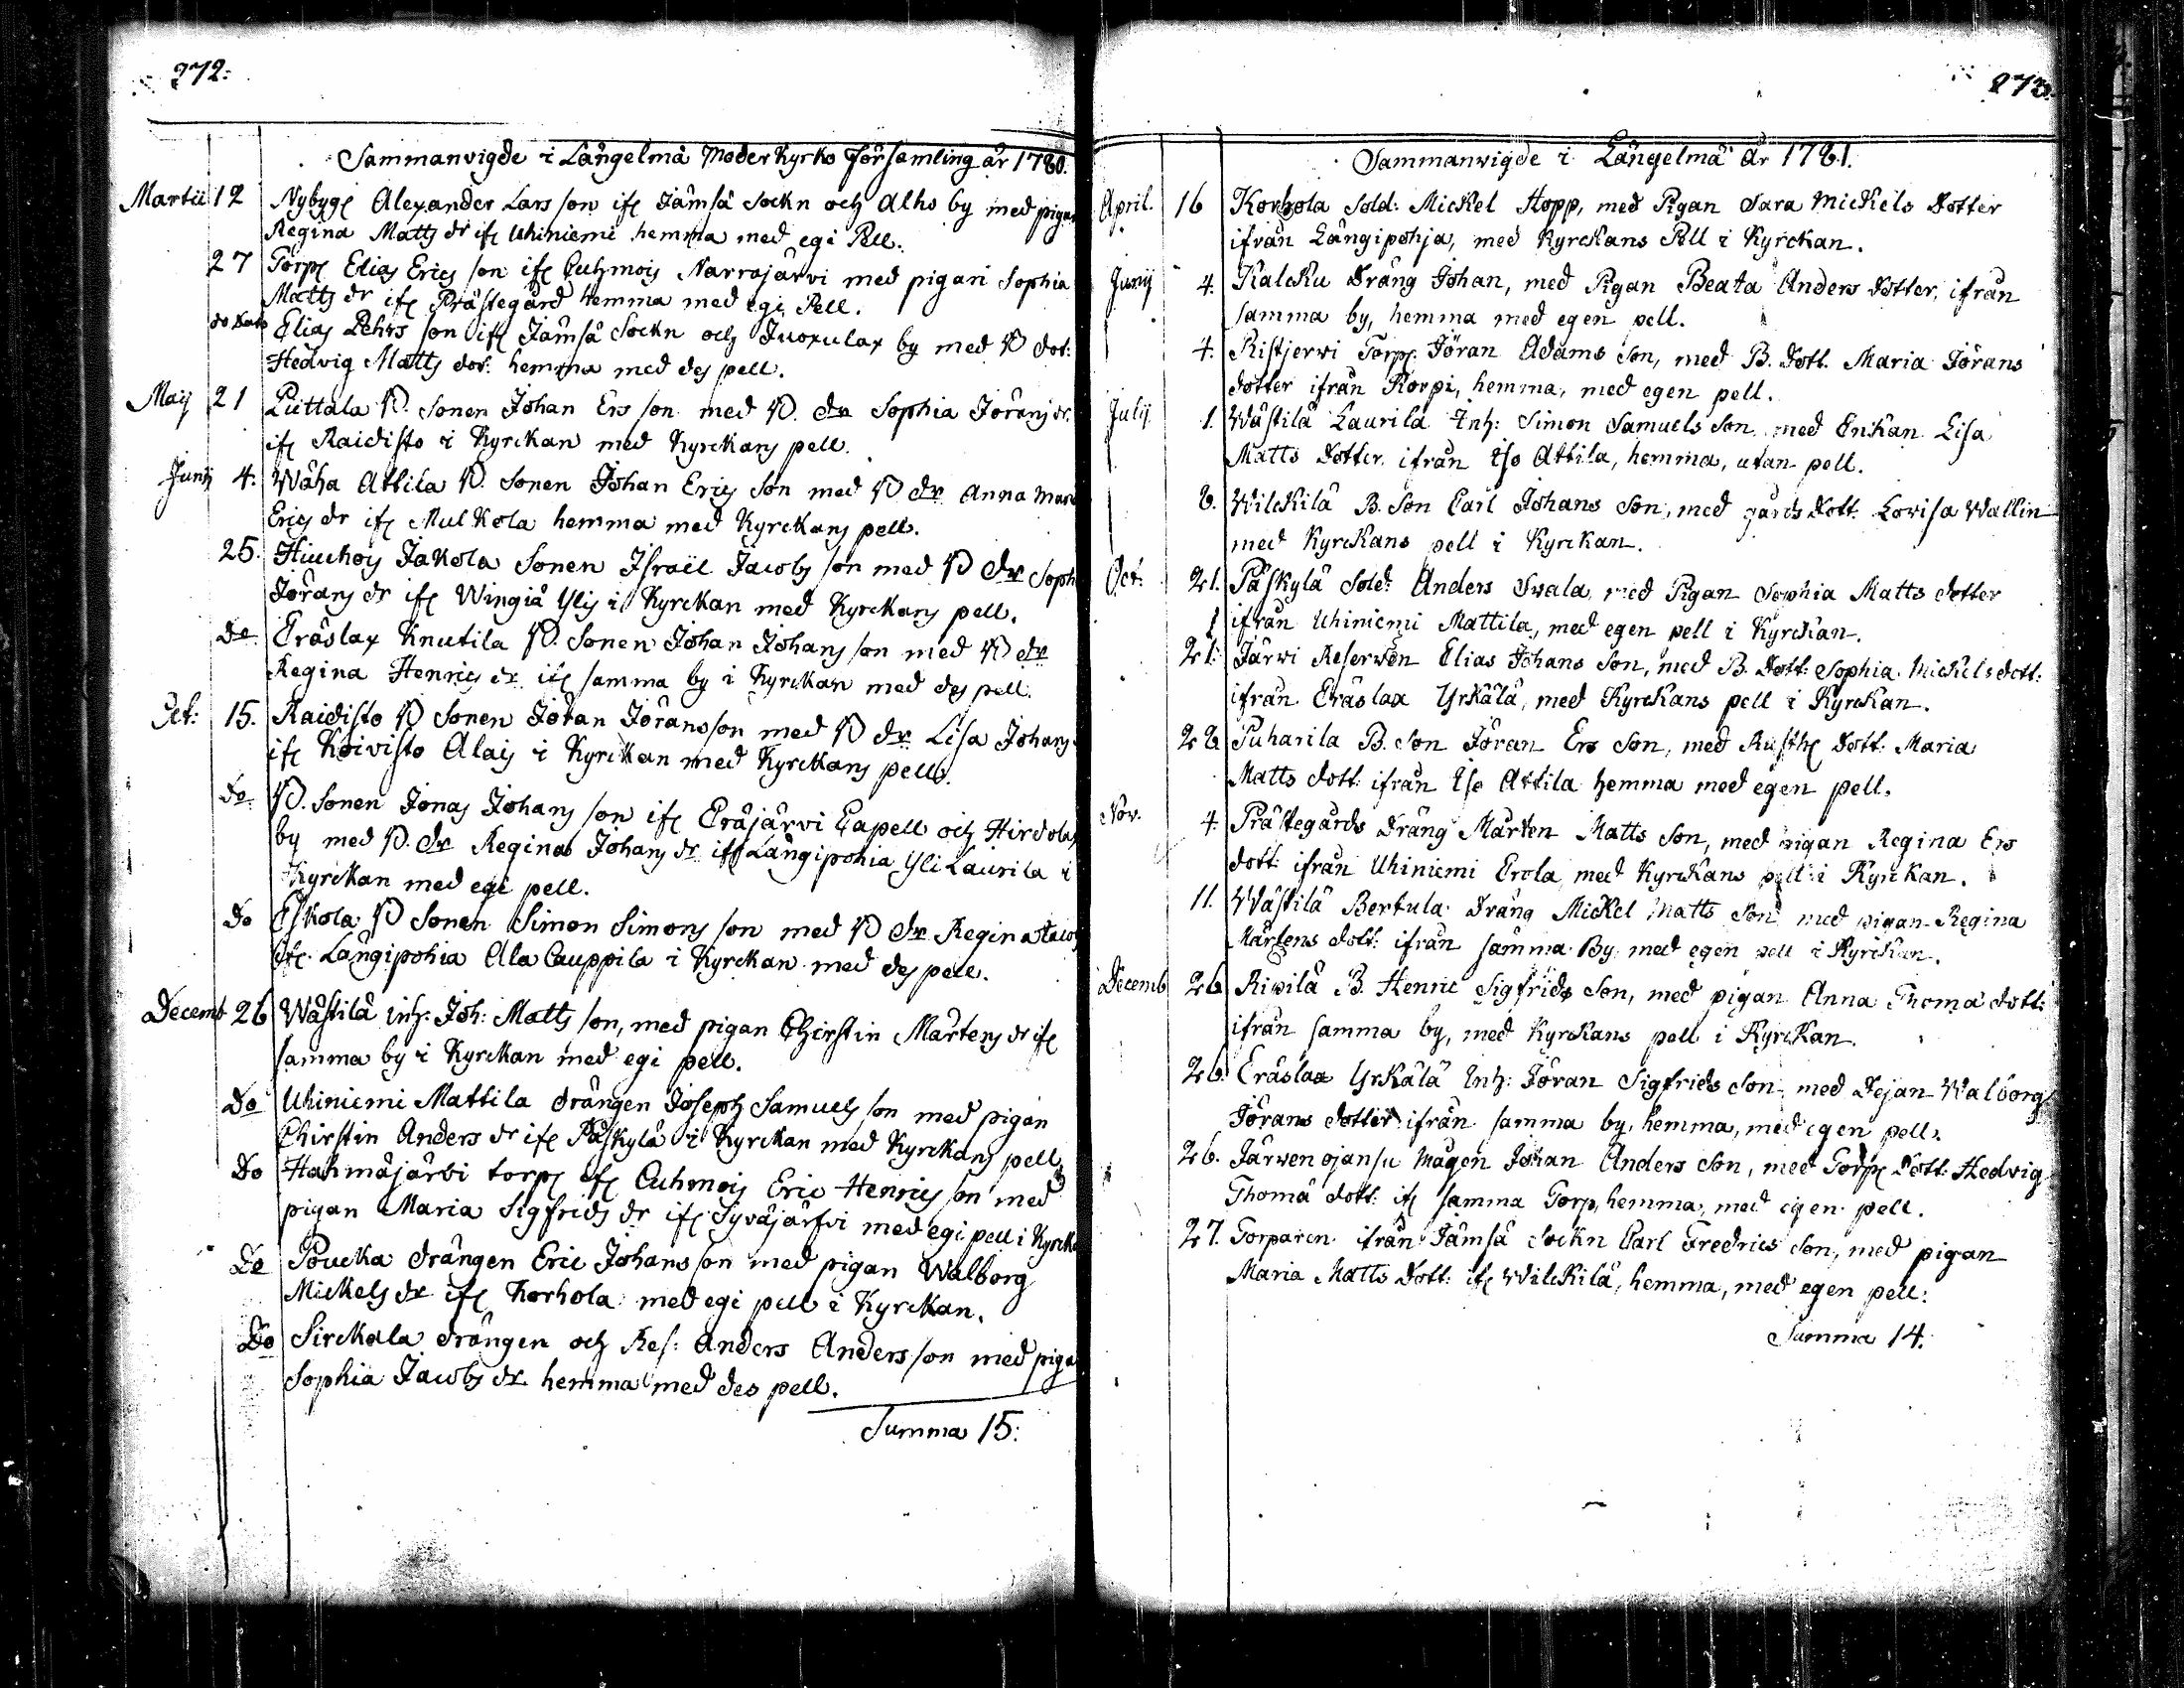 272:
Sammanvigde i Längelmä Moder Kyrko Församling år 1780.
Martii 12 Nybygg Alexander Lars son ifr Jämsä Sockn och Alho by med pigan
Regina Matts dr ifr Uhiniemi hemma med egi Pell.
27 Torp Elias Erics son ifr Cuhmois Narrajärvi med pigan Sophia
Matts dr ifr Prästegård hemma med egi Pell.
do dato Elias Pehrs son ifr Jämsä Sockn och Juoxulax by med B dot:
Hedvig Matts dot: hemma med des pell.
Maij 21 Puttala B. Sonen Johan Ers son med B. dr Sophia Jörans dr.
ifr Raidisto i Kyrckan med Kyrckans pell.
Junij 4: Wäha Attila B. Sonen Johan Erics Son med B dr Anna Maria
Erics dr ifr Mulkola hemma med Kyrckans pell.
25. Hiuchois Jakola Sonen Israel Jacobs son med B dr Soph
Jörans dr ifr Wingiä Ylis i Kyrckan med Kyrckans pell.
Do Eräslax Knutila B. Sonen Johan Johans son med B dr
Regina Henrics dr ifr samma by i Kyrckan med des pell.
Oct: 15. Raidisto B Sonen Jöran Jörans son med B dr Lisa Johans
ifr Koivisto Alais i Kyrckan med Kyrckans pell.
Do B. Sonen Jonas Johans son ifr Eräjärvi Capell och Hirdola
by med B. dr Regina Johans dr ifr Längipohia Yli Laurila i
Kyrckan med egi pell.
Do Eskola B Sonen Simon Simons son med B dr Regina Jacobs
ifr Längipohia Ala Cauppila i Kyrckan med des pell.
Decemb 26 Wästilä inh: Joh: Matts son, med pigan Christin Mårtens dr ifr
samma by i Kyrckan med egi pell.
Do Uhiniemi Mattila drängen Joseph Samuels son med pigan
Christin Anders dr ifr Påskylä i Kyrckan med Kyrckans pell
Do Hahmajärvi torp ifr Cuhmois Eric Henrics son med
pigan Maria Sigfrids dr ifr Syväjärfvi med egi pell i Kyrcka
Do Poucka drängen Eric Johans son med pigan Walborg
Mickels dr ifr Korhola med egi pell i Kyrckan.
Do Sirckala drängen och Res: Anders Anders son med piga
Sophia Jacobs dr hemma med des pell.
Summa 15:
273.
Sammanvigde i Längelmä år 1781.
April. 16 Korhola Sold: Mickel Hopp, med Pigan Sara Mickels Dotter
ifrån Längipohja, med Kyrckans Pell i Kyrckan.
Junij 4. Kalcku Dräng Johan, med Pigan Beata Anders dotter, ifrån
samma by, hemma med egen pell.
4. Ristjerwi Torp. Jöran Adams Son, med B. Dott. Maria Jörans
dotter ifrån Korpi, hemma, med egen pell.
Julij 1. Wästilä Laurila Inh: Simon Samuels Son med Enkan Lisa
Matts Dotter ifrån Iso Attila, hemma, utan pell.
8. Wilckilä B. Son Carl Johans Son, med gårds Dott. Lovisa Wallin
med Kyrckans pell i Kyrckan.
Oct: 21. Påskylä Sold: Anders Swala, med Pigan Sophia Matts dotter
ifrån Uhiniemi Mattila, med egen pell i Kyrckan.
21. Järwi Reserven Elias Johans Son, med B. Dott: Sophia Mickels dott:
ifrån Eräslax Yrkälä, med Kyrckans pell i Kyrckan.
28 Puharila B. Son Jöran Ers Son, med Rusth Dott: Maria
Matts dott: ifrån Iso Attila hemma med egen pell.
Nov. 4. Prästegårds Dräng Mårten Matts Son, med pigan Regina Ers
dott: ifrån Uhiniemi Erola, med Kyrckans pell i Kyrckan.
11. Wästilä Bertula Dräng Mickel Matts Son med pigan Regina
Mårtens dott: ifrån samma By, med egen pell i Kyrckan.
Decemb 26 Riwilä B. Henric Sigfrids Son, med pigan Anna Thoma dott:
ifrån samma by, med Kyrckans pell i Kyrckan.
26. Eräslax Yrkälä Inh: Jöran Sigfrids Son med Dejan Walborg
Jörans dotter ifrån samma by, hemma, med egen pell.
26. Järwen ojansu Mågen Johan Anders Son, med Torp Dott. Hedvig
Thomä dott: ifr samma Torp, hemma, med egen pell.
27. Torparen ifrån Jämsä Sockn Carl Fredrics Son, med pigan
Maria Matts Dott: ifr Wilckilä, hemma, med egen pell:
Summa 14.